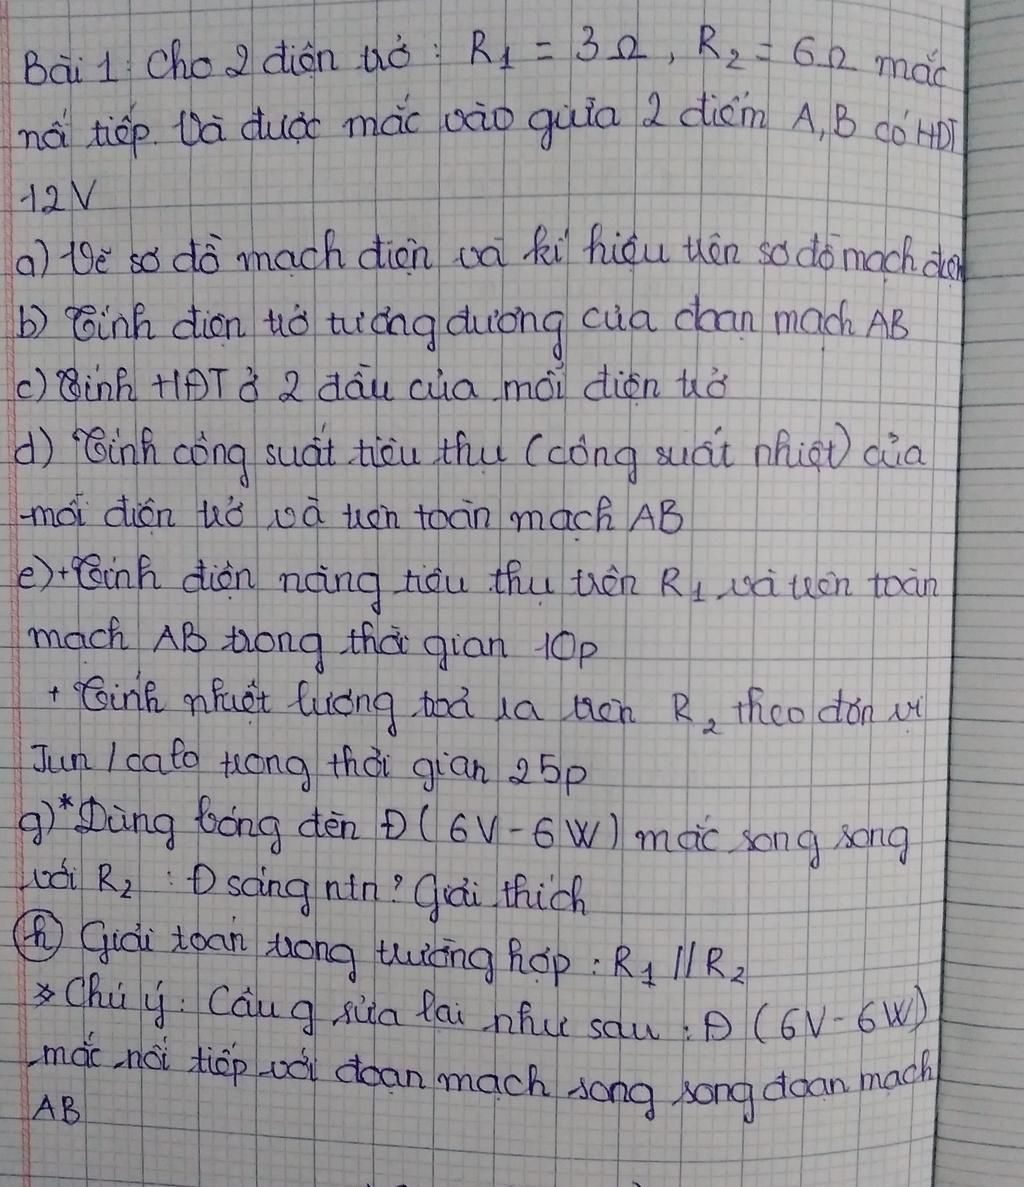 Bài 1: Cho 2 điện trở : R₁ = 3Ω, R₂ = 6Ω mắc
nối tiếp. Và được mắc vào giữa 2 điểm A, B có HĐT
12V
a) Vẽ sơ đồ mạch điện và kí hiệu trên sơ đồ mạch điện
b) Tính điện trở tương đương của đoạn mạch AB
c) Tính HĐT ở 2 đầu của mỗi điện trở
d) Tính công suất tiêu thụ (công suất nhiệt) của
mỗi điện trở và trên toàn mạch AB
e) + Tính điện năng tiêu thụ trên R₁ và trên toàn
mạch AB trong thời gian 10p
+ Tính nhiệt lượng toả ra trên R₂ theo đơn vị
Jun / calo trong thời gian 25p
g)* Dùng bóng đèn Đ ( 6V - 6W ) mắc song song
với R₂ : Đ sáng ntn? Giải thích
h) Giải toán trong trường hợp : R₁ // R₂
* Chú ý : Câu g sửa lại như sau : Đ ( 6V - 6W )
mắc nối tiếp với đoạn mạch song song đoạn mạch
AB